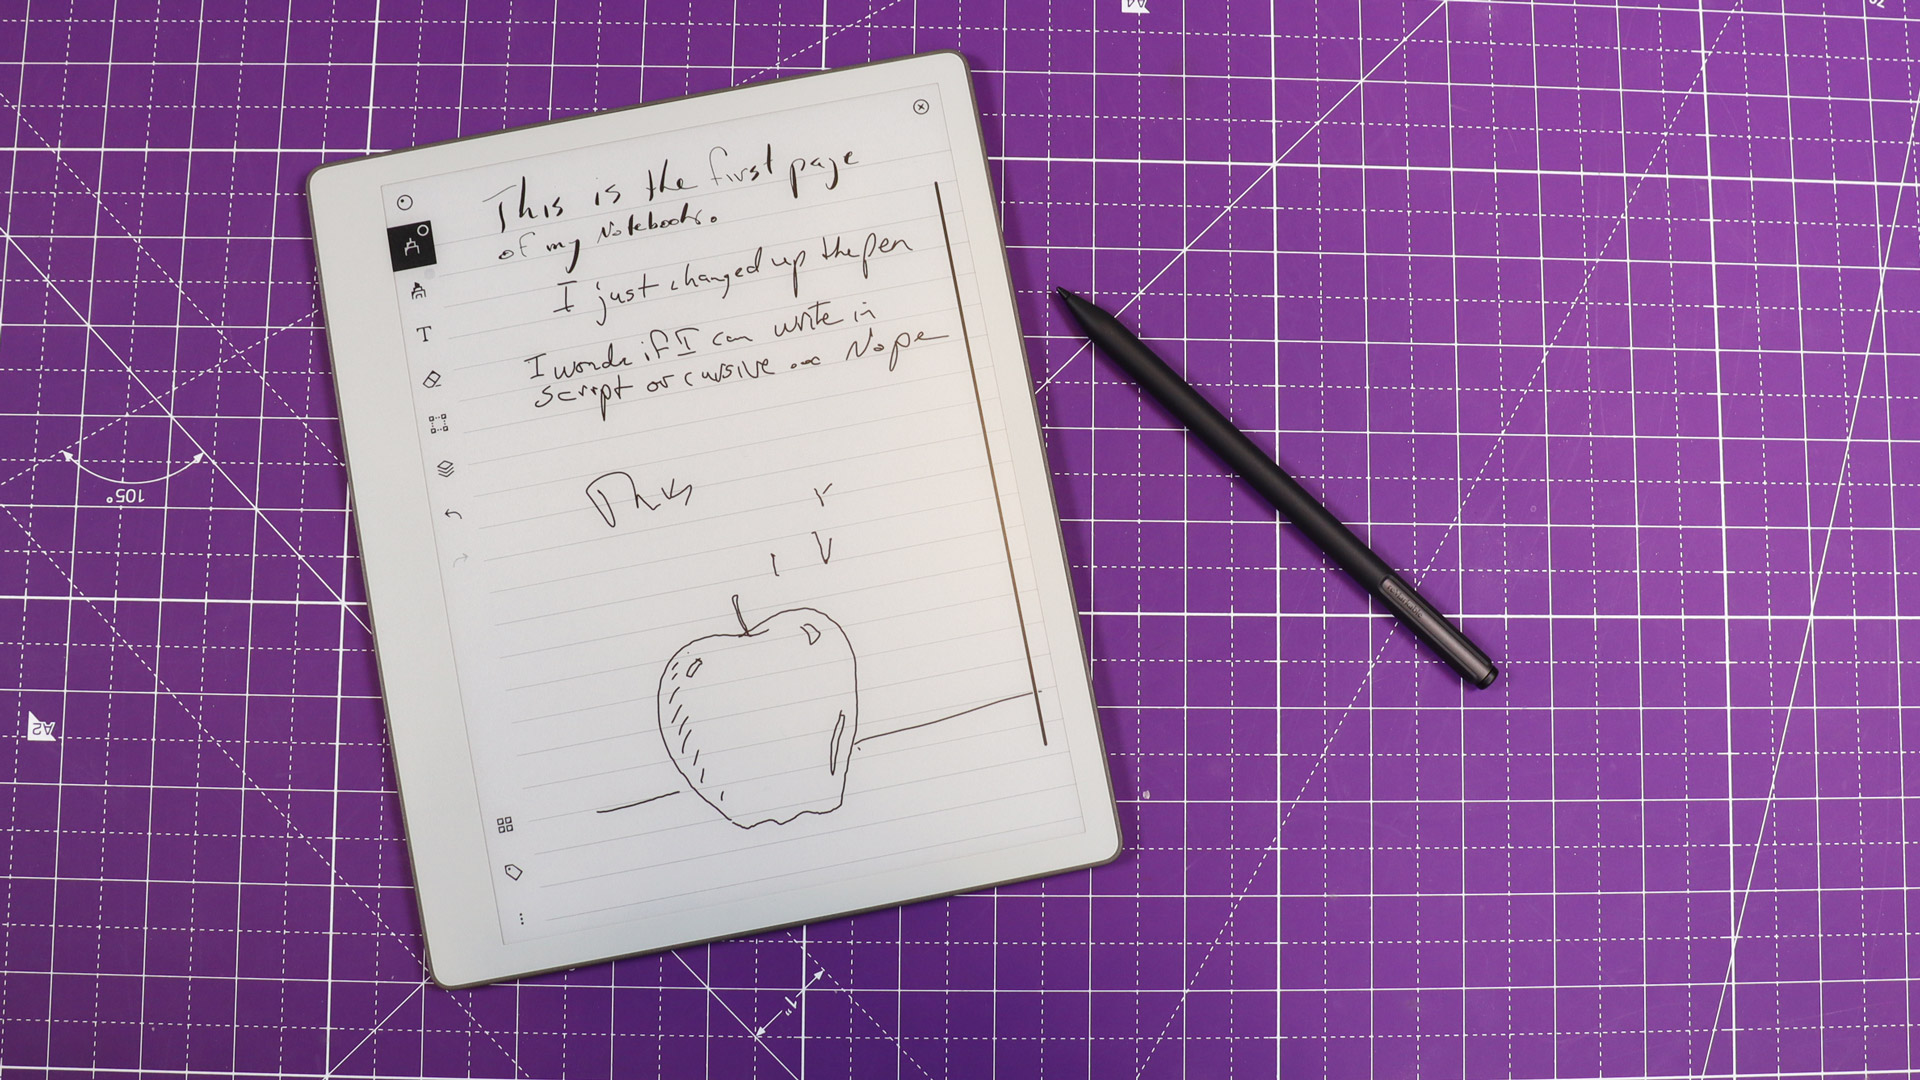 This is the first page
of my Notebook.
I just changed up the pen
I wonde if I can write in
script or cursive ... Nope
T
105°
A2
1"
reMarkable